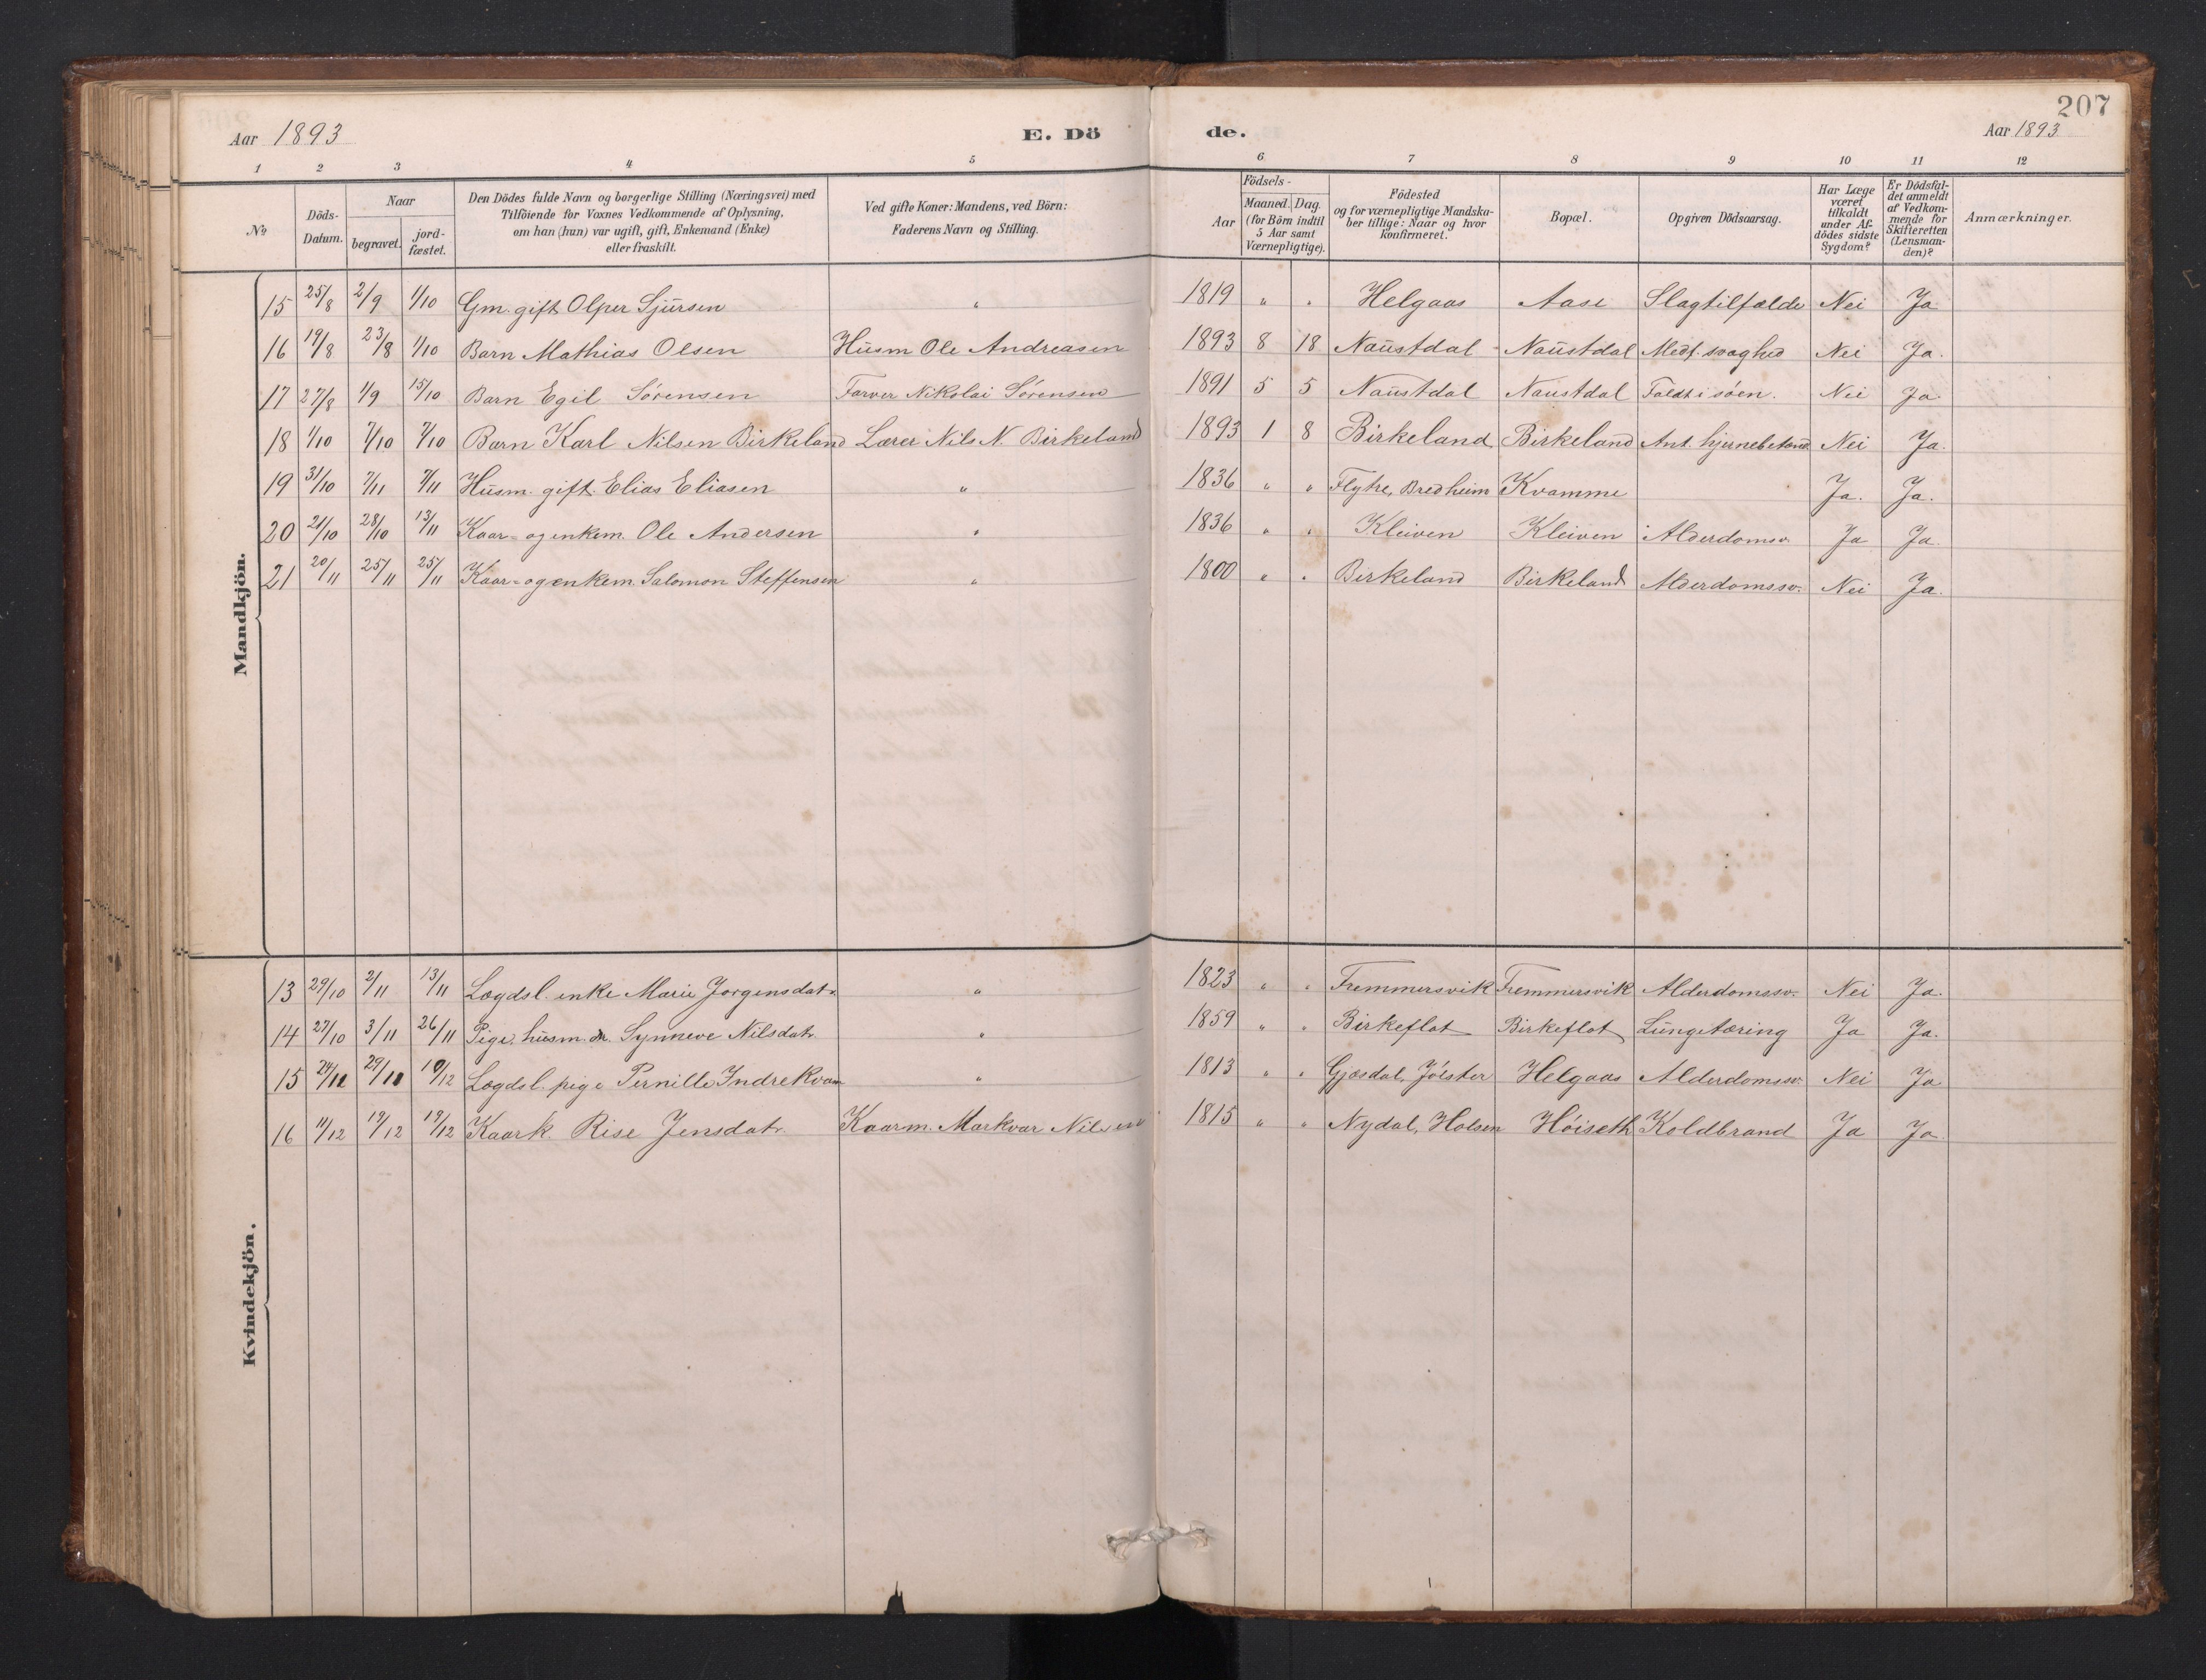 207
Aar 1893 E. Dö de. Aar 1893
1 2 3 4 5 6 7 8 9 10 11 12
No
Döds-Datum.
Naar
begravet.
jord-fæstet.
Den Dödes fulde Navn og borgerlige Stilling (Næringsvei) med
Tilföiende for Voxnes Vedkommende af Oplysning,
om han (hun) var ugift, gift, Enkemand (Enke)
eller fraskilt.
Ved gifte Koner: Mandens, ved Börn:
Faderens Navn og Stilling.
Födsels-
Aar
Maaned. Dag.
(for Börn indtil
5 Aar samt
Værnepligtige).
Födested
og for værnepligtige Mandska-
ber tillige: Naar og hvor
konfirmeret.
Bopæl.
Opgiven Dödsaarsag.
Har Læge
været
tilkaldt
under Af-
dödes sidste
Sygdom?
Er Dödsfal-
det anmeldt
af Vedkom-
mende for
Skifteretten
(Lensman-
den)?
Anmærkninger.
Mandkjön.
15 25/8 2/9 1/10 Gm. gift Olper Sjursen " 1819 " " Helgaas Aase Slagtilfælde Nei Ja
16 19/8 23/8 1/10 Barn Mathias Olsen Husm Ole Andreasen 1893 8 18 Naustdal Naustdal Medf. svaghed Nei Ja.
17 27/8 1/9 15/10 Barn Egil Sörensen Farver Nikolai Sörensen 1891 5 5 Naustdal Naustdal Faldt i söen. Nei Ja
18 1/10 7/10 7/10 Barn Karl Nilsen Birkeland Lærer Nils N. Birkeland 1893 1 8 Birkeland Birkeland Ant. hjernebetænd. Nei Ja.
19 31/10 7/11 7/11 Husm. gift. Elias Eliasen " 1836 " " Flytre, Bredheim Kvamme Ja. Ja.
20 21/10 28/10 13/11 Kaar= og enkem. Ole Andersen " 1836 " " Kleiven Kleiven Alderdomsv. Ja Ja.
21 20/11 25/11 25/11 Kaar= og enkem. Salomon Steffensen " 1800 " " Birkeland Birkeland Alderdomssv. Nei Ja.
Kvindekjön.
13 29/10 2/11 13/11 Lægdsl. enke Marie Jorgensdatr. " 1823 " " Fremmersvik Fremmersvik Alderdomssv. Nei Ja.
14 27/10 3/11 26/11 Pige, husm. dr. Synneve Nilsdatr. " 1859 " " Birkeflot Birkeflot Lungetæring Ja Ja.
15 24/11 29/11 10/12 Lægdsl. pige Pernille Indrekvam " 1813 " " Gjæsdal, Jölster Helgaas Alderdomssv. Nei Ja
16 11/12 19/12 19/12 Kaark. Rise Jensdatr. Kaarm. Markvar Nilsen 1815 " " Nydal, Holsen Höiseth Koldbrand Ja Ja.